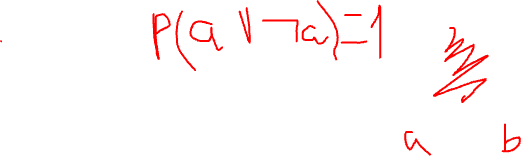 P(a ∨ ¬a)=1
a b